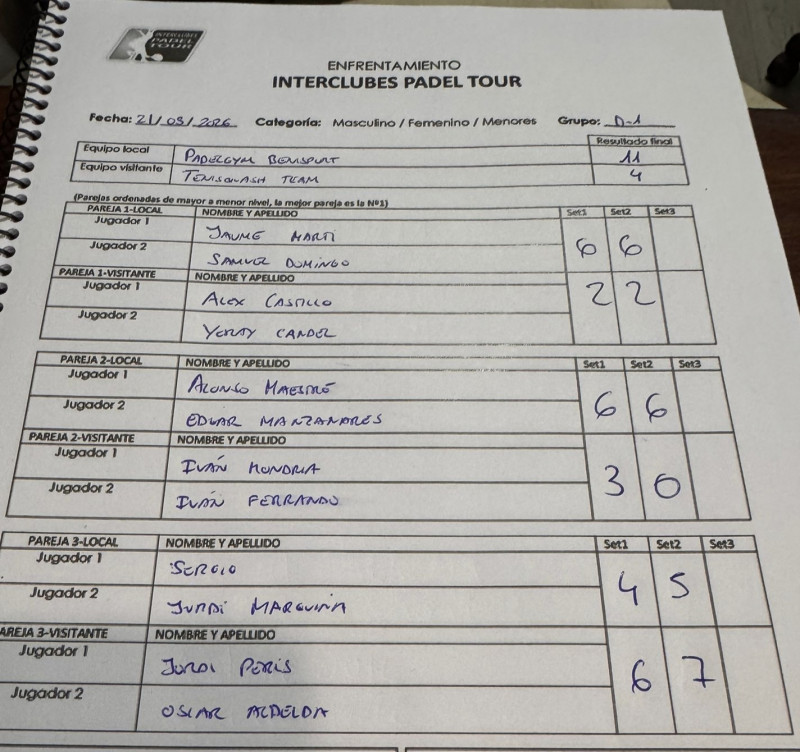 INTERCLUBES
PADEL
TOUR
ENFRENTAMIENTO
INTERCLUBES PADEL TOUR
Fecha: 21/03/2026 Categoría: Masculino / Femenino / Menores Grupo: D-1
Resultado final
Equipo local PADELGYM BENISPORT 11
Equipo visitante TENISQUASH TEAM 4
(Parejas ordenadas de mayor a menor nivel, la mejor pareja es la Nº1)
PAREJA 1-LOCAL NOMBRE Y APELLIDO Set1 Set2 Set3
Jugador 1 JAUME MARTI
6 6
Jugador 2 SAMUEL DOMINGO
PAREJA 1-VISITANTE NOMBRE Y APELLIDO
Jugador 1 ALEX CASTILLO
2 2
Jugador 2 YERAY CANDEL
PAREJA 2-LOCAL NOMBRE Y APELLIDO Set1 Set2 Set3
Jugador 1 ALONSO MAESTRE
6 6
Jugador 2 EDGAR MANZANARES
PAREJA 2-VISITANTE NOMBRE Y APELLIDO
Jugador 1 IVÁN MONDRIA
3 0
Jugador 2 IVÁN FERRANDO
PAREJA 3-LOCAL NOMBRE Y APELLIDO Set1 Set2 Set3
Jugador 1 SERGIO
4 5
Jugador 2 JORDI MARQUINA
AREJA 3-VISITANTE NOMBRE Y APELLIDO
Jugador 1 JORDI PERIS
6 7
Jugador 2 OSCAR ALDELDA